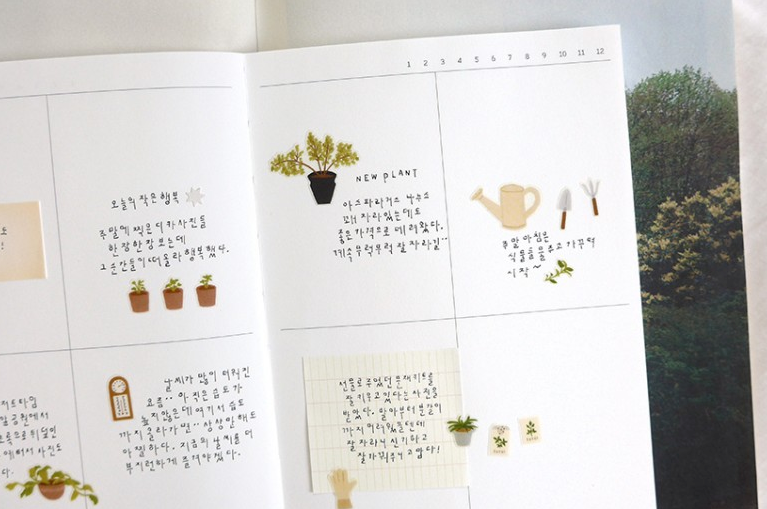 1 2 3 4 5 6 7 8 9 10 11 12
오늘의 작은 행복
주말에 찍은 디카사진들
한장한장 보는데
그 순간들이 떠올라 행복했다.
NEW PLANT
아스파라거스 나누스
꽤 자라있는데도
좋은 가격으로 데려왔다.
계속 무럭무럭 잘 자라길..
주말 아침은
식물들 물주고 가꾸며
시작~
날씨가 많이 더워진
요즘.. 아직은 습도가
높지않은데 여기서 습도
까지 올라가면.. 상상만해도
아찔하다. 지금의 날씨를 더
부지런하게 즐겨야겠다.
선물로 주었던 분재키트를
잘 키우고 있다는 사진을
받았다. 발아부터 분갈이
까지 어려웠을텐데
잘 자라니 신기하고
잘 키워주니 고맙다!